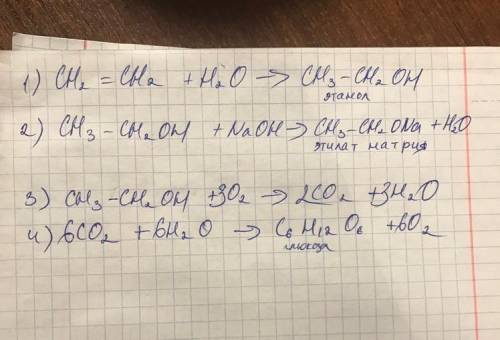 1) CH₂ = CH₂ + H₂O → CH₃-CH₂OH
этанол
2) CH₃ - CH₂OH + NaOH → CH₃-CH₂ONa + H₂O
этилат натрия
3) CH₃-CH₂OH + 3O₂ → 2CO₂ + 3H₂O
4) 6CO₂ + 6H₂O → C₆H₁₂O₆ + 6O₂
глюкоза